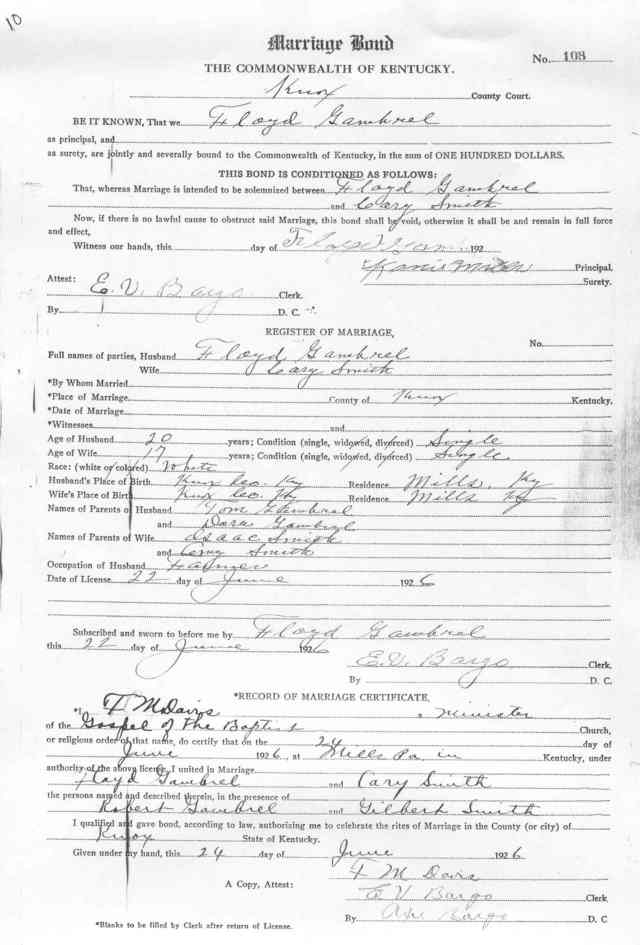 10
Marriage Bond
No. 108
THE COMMONWEALTH OF KENTUCKY.
Knox County Court.
BE IT KNOWN, That we Floyd Gambrel
as principal, and
as surety, are jointly and severally bound to the Commonwealth of Kentucky, in the sum of ONE HUNDRED DOLLARS.
THIS BOND IS CONDITIONED AS FOLLOWS:
That, whereas Marriage is intended to be solemnized between Floyd Gambrel
and Cary Smith
Now, if there is no lawful cause to obstruct said Marriage, this bond shall be void, otherwise it shall be and remain in full force
and effect,
Witness our hands, this day of Floyd 192
Principal.
Attest: E. V. Bargo Clerk. Surety.
By D. C.
REGISTER OF MARRIAGE,
No.
Full names of parties, Husband Floyd Gambrel
Wife Cary Smith
*By Whom Married
*Place of Marriage County of Knox Kentucky.
*Date of Marriage
*Witnesses and
Age of Husband 20 years; Condition (single, widowed, divorced) Single
Age of Wife 17 years; Condition (single, widowed, divorced) Single
Race: (white or colored) White
Husband's Place of Birth Knox Co. Ky Residence Mills, Ky
Wife's Place of Birth Knox Co. Ky Residence Mills Ky
Names of Parents of Husband Tom Gambrel
and Dora Gambrel
Names of Parents of Wife Isaac Smith
and Smith
Occupation of Husband Farmer
Date of License 22 day of June 1926
Subscribed and sworn to before me by Floyd Gambrel
this 22 day of June 1926
E. V. Bargo Clerk.
By D. C.
*RECORD OF MARRIAGE CERTIFICATE,
*I, F M Davis a minister
of the Gospel of The Baptist Church,
or religious order of that name, do certify that on the 24 day of
June 1926, at Mills in County, Kentucky, under
authority of the above license, I united in Marriage
Floyd Gambrel and Cary Smith
the persons named and described therein, in the presence of
Robert Gambrel and Gilbert Smith
I qualified and gave bond, according to law, authorizing me to celebrate the rites of Marriage in the County (or city) of
Knox State of Kentucky.
Given under my hand, this 24 day of June 1926
F M Davis
A Copy, Attest: E V Bargo Clerk.
By Bargo D. C
*Blanks to be filled by Clerk after return of License.